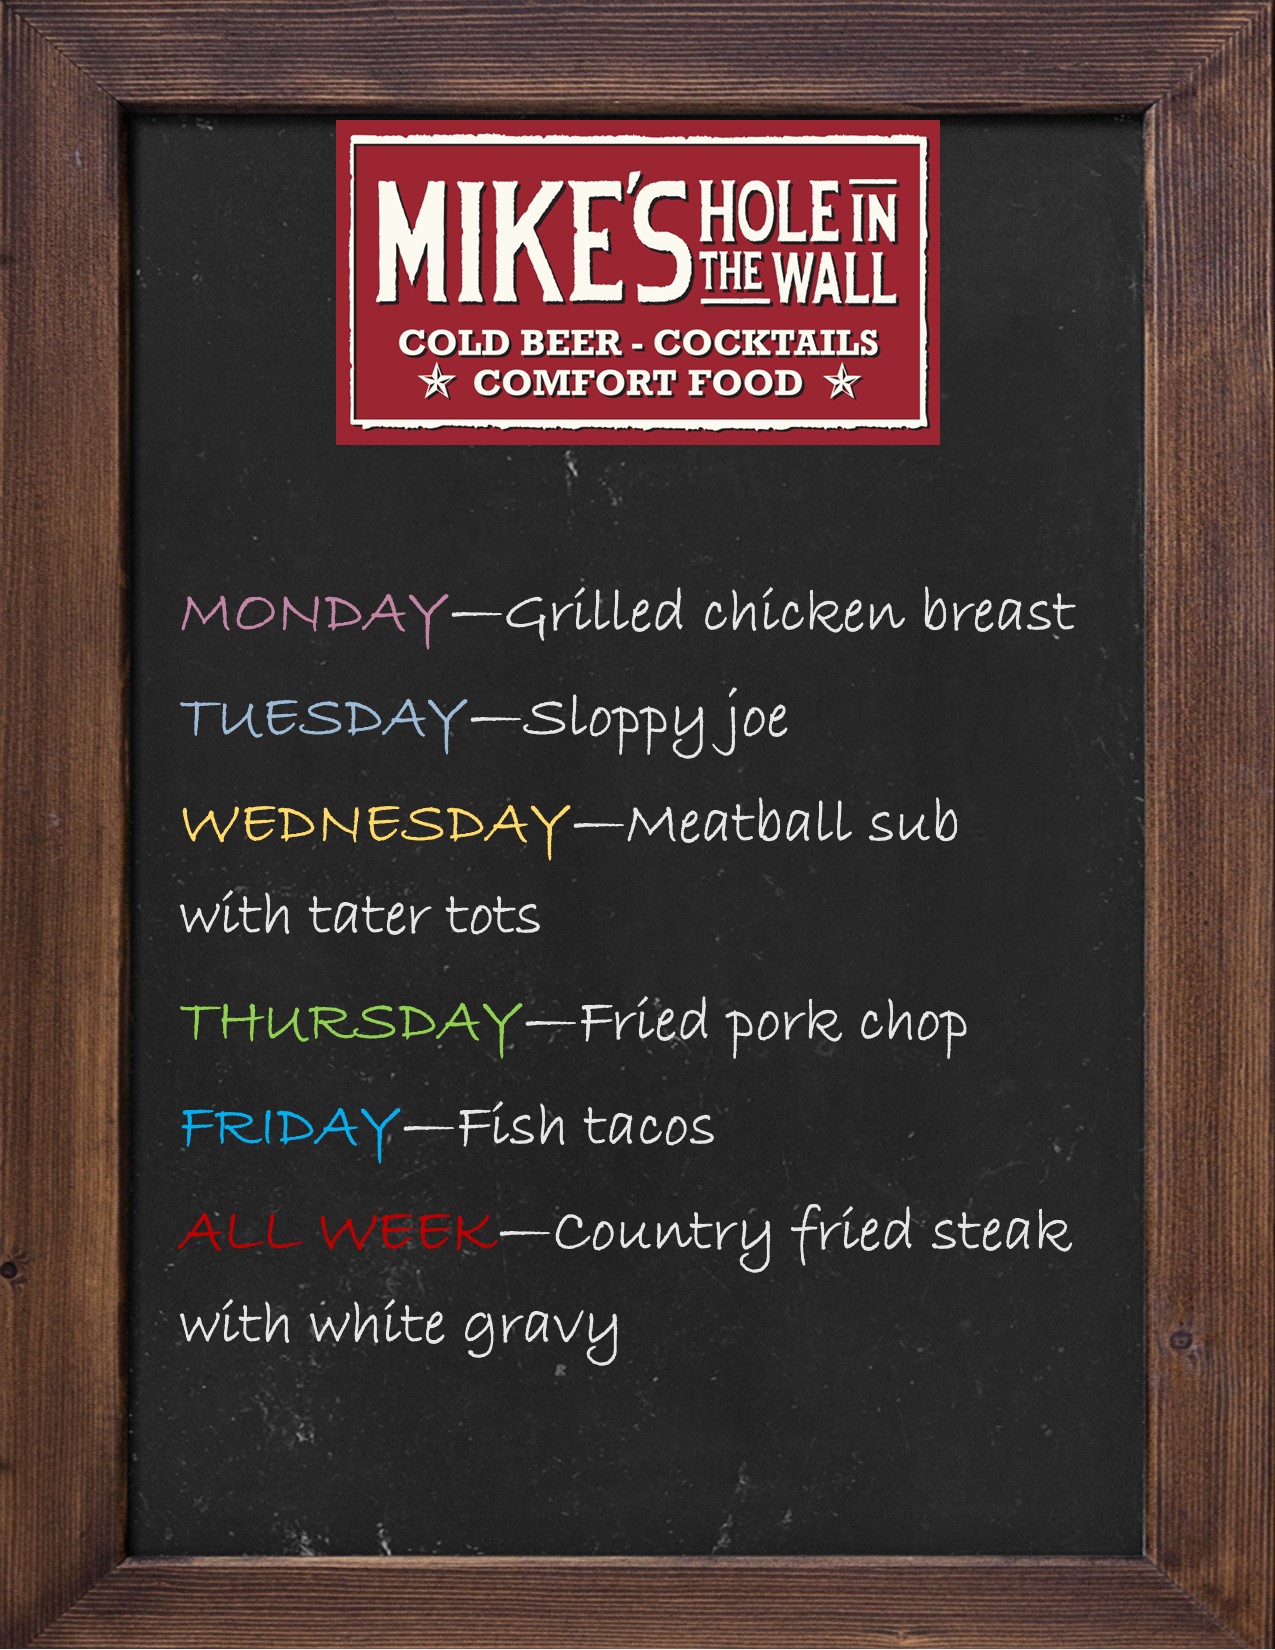 MIKE'S HOLE IN
THE WALL
COLD BEER - COCKTAILS
COMFORT FOOD
MONDAY—Grilled chicken breast
TUESDAY—Sloppy joe
WEDNESDAY—Meatball sub
with tater tots
THURSDAY—Fried pork chop
FRIDAY—Fish tacos
ALL WEEK—Country fried steak
with white gravy